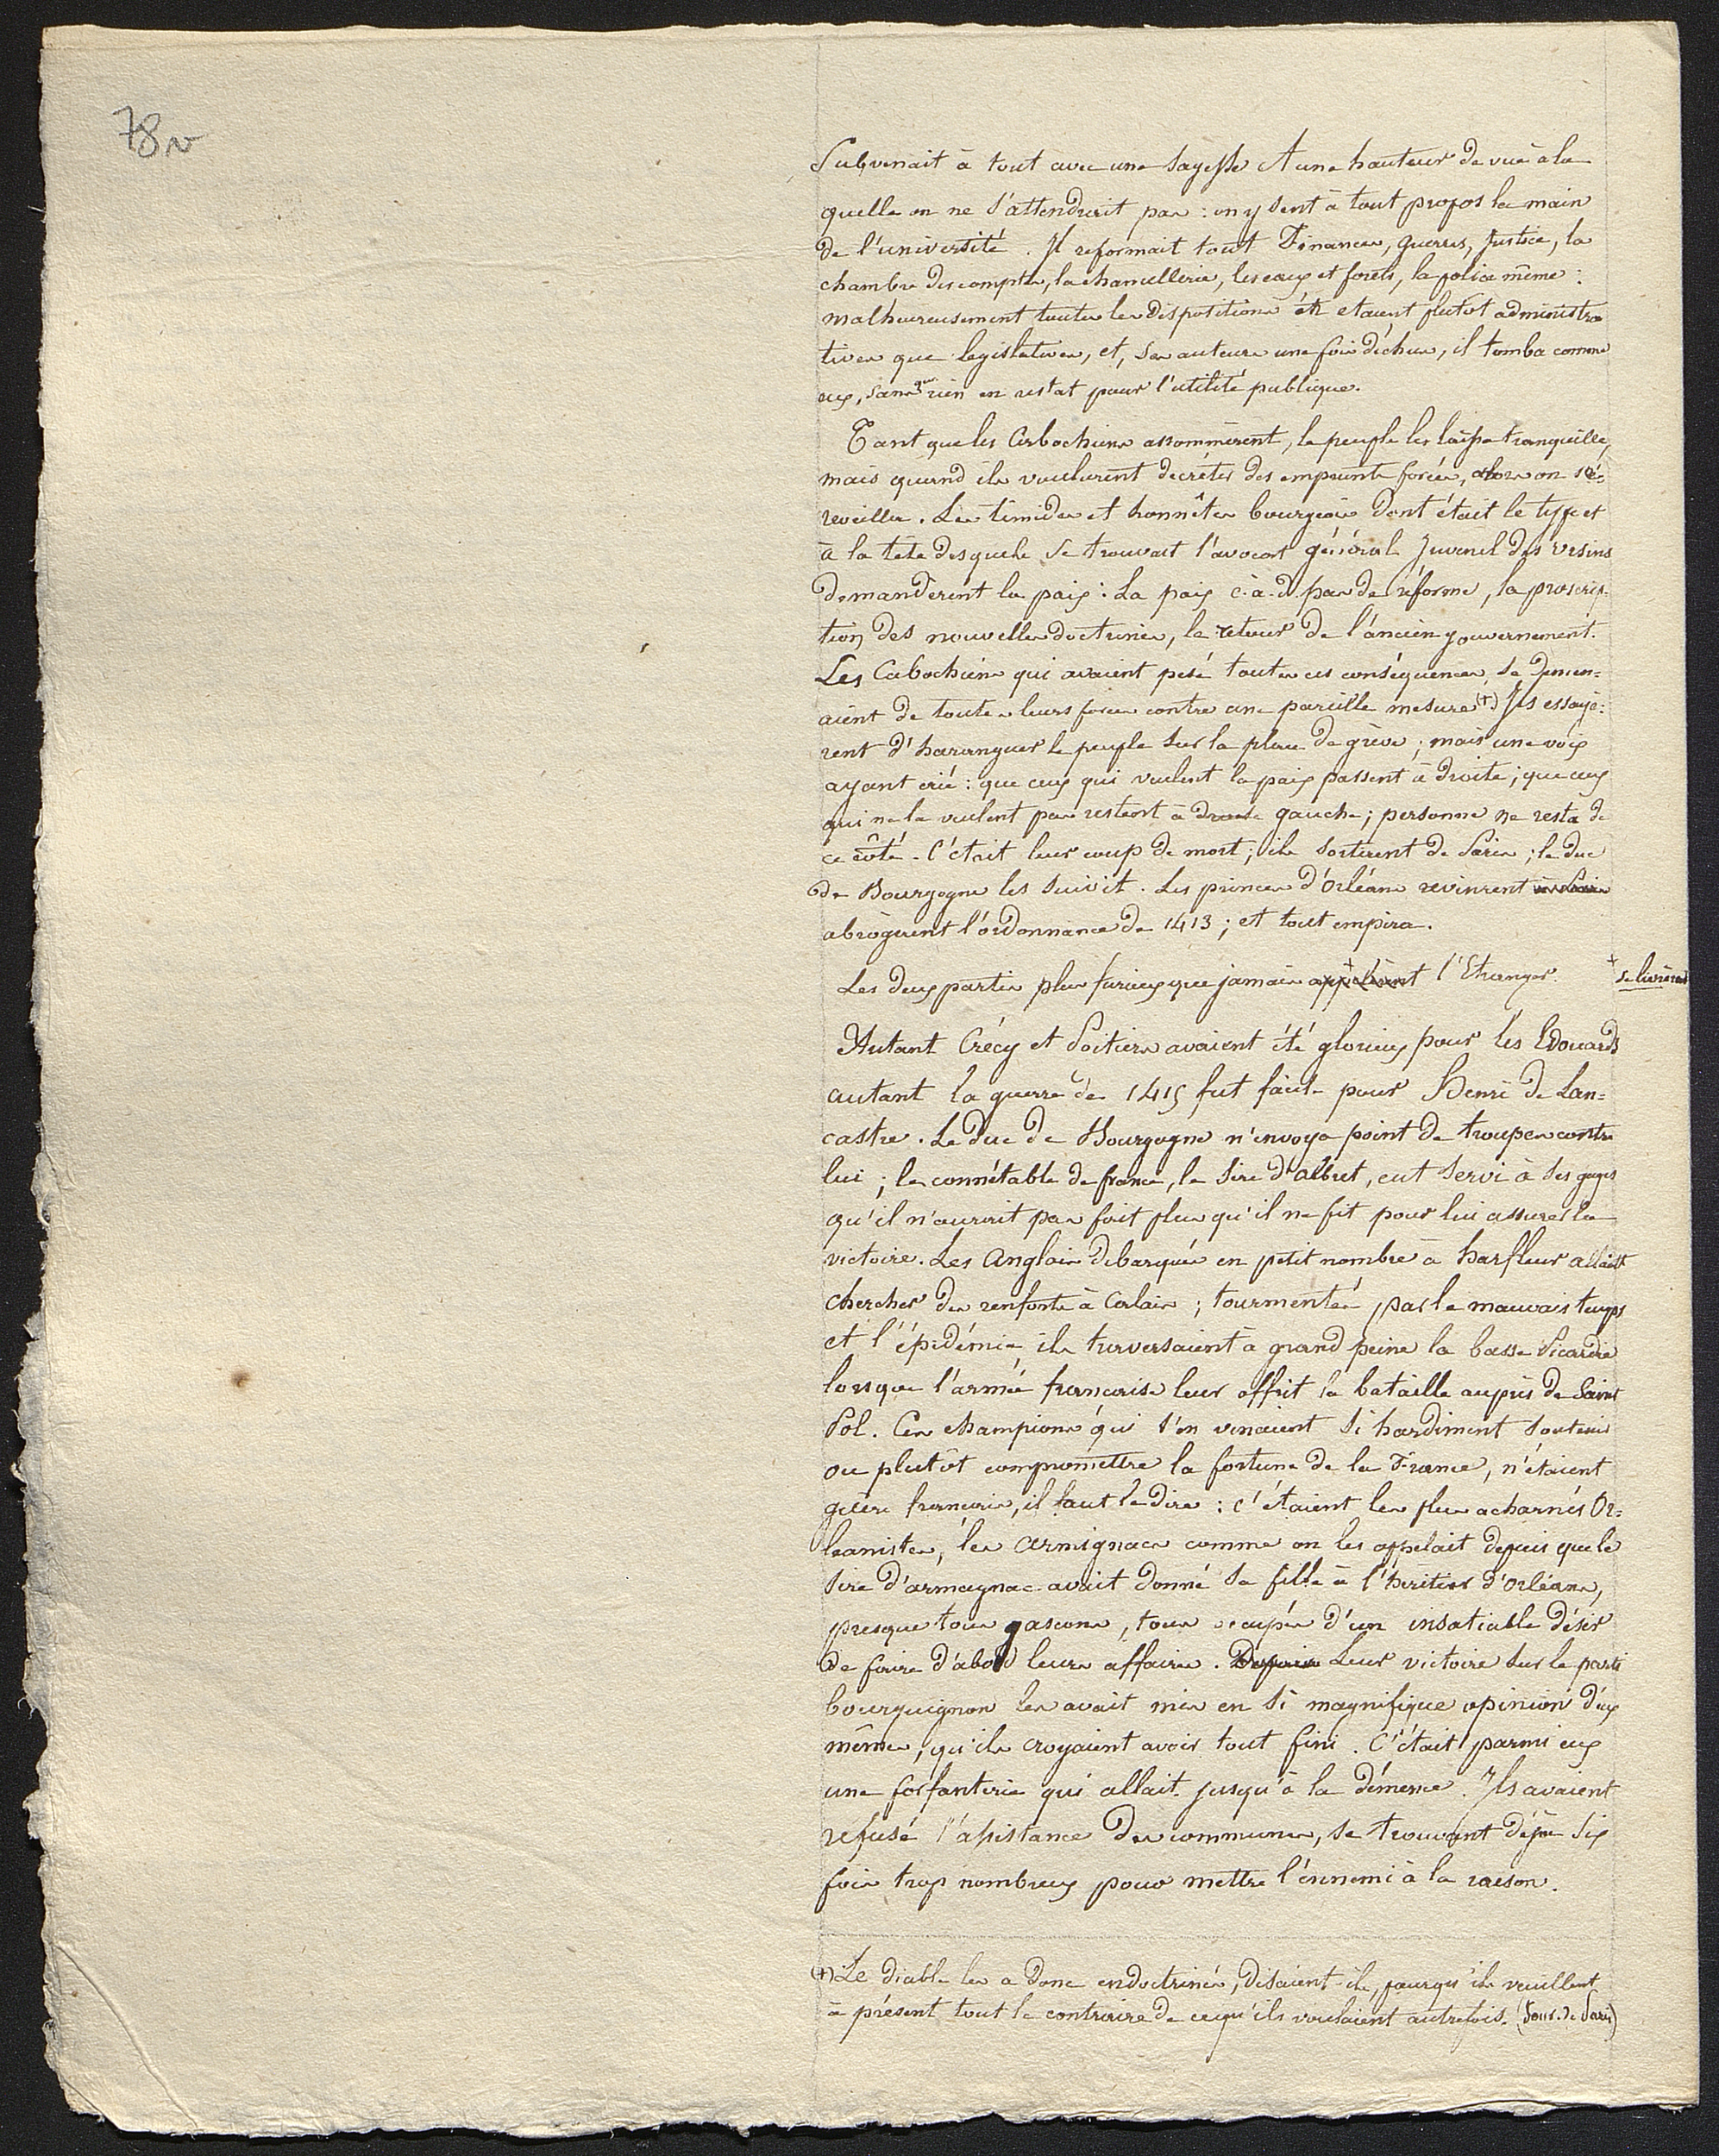 78v
Subvenait à tout avec une sagesse et une hauteur de vue à la
quelle on ne s'attendrait pas : on y sent à tout propos la main
de l'université. Il reformait tout Finances, guerres, Justice, la
chambre des comptes, la chancellerie, les eaux et forêts, la police même :
malheureusement toutes les dispositions etaient plutot administra
tives que legislatives, et, ses auteurs une fois déchus, il tomba comme
eux, sans que rien en restat pour l'utilité publique.
Tant que les Cabochiens assommèrent, le peuple les laissa tranquilles,
mais quand ils voulurent decréter des emprunts forcés, alors on se
reveilla. Les timides et honnêtes bourgeois dont était le type et
à la tête desquels se trouvait l'avocat général Juvenel des Ursins
demandèrent la paix : La paix c.à.d. pas de réforme, la proscrip-
tion des nouvelles doctrines, le retour de l'ancien gouvernement.
Les Cabochiens qui avaient pesé toutes ces conséquences, se demen=
aient de toutes leurs forces contre une pareille mesure (+) Ils essayè=
rent d'haranguer le peuple sur la place de grève ; mais une voix
ayant crié : que ceux qui veulent la paix passent à droite ; que ceux
qui ne la veulent pas restent à droite gauche ; personne ne resta de
ce côté. C'était leur coup de mort ; ils sortirent de Paris ; le duc
de Bourgogne les suivit. Les princes d'Orléans revinrent à Paris
abrogèrent l'ordonnance de 1413 ; et tout empira.
Les deux partis plus furieux que jamais appelèrent + l'Etranger.
+ se livrèrent
Autant Crécy et Poitiers avaient été glorieux pour les Edouards
autant la guerre de 1415 fut facile pour Henri de Lan=
castre. Le Duc de Bourgogne n'envoya point de troupes contre
lui ; le connétable de france, le sire d'albret, eut servi à ses gages
qu'il n'aurait pas fait plus qu'il ne fit pour lui assurer la
victoire. Les Anglais debarqués en petit nombre à harfleur allaient
chercher des renforts à Calais ; tourmentés par le mauvais temps
et l'épidémie ils traversaient à grand peine la basse Picardie
lorsque l'armée française leur offrit la bataille auprès de Saint
Pol. Ces champions qui s'en venaient si hardiment soutenir
ou plutôt compromettre la fortune de la France, n'étaient
guère français, il faut le dire : c'étaient les plus acharnés Or=
leanistes, les armignacs comme on les appelait depuis que le
sire d'armagnac avait donné sa fille à l'héritier d'Orléans,
presque tous gascons, tous occupés d'un insatiable désir
de faire d'abord leurs affaires. Leur victoire sur le parti
bourguignon les avait mis en si magnifique opinion d'eux
mêmes, qu'ils croyaient avoir tout fini. C'était parmi eux
une forfanterie qui allait jusqu'à la démence. Ils avaient
refusé l'assistance des communes, se trouvant déjà six
fois trop nombreux pour mettre l'ennemi à la raison.
(+) Le diable les a donc endoctrinés, disaient-ils, pourqu'ils veuillent
à présent tout le contraire de ce qu'ils voulaient autrefois. (Jour. de Paris)